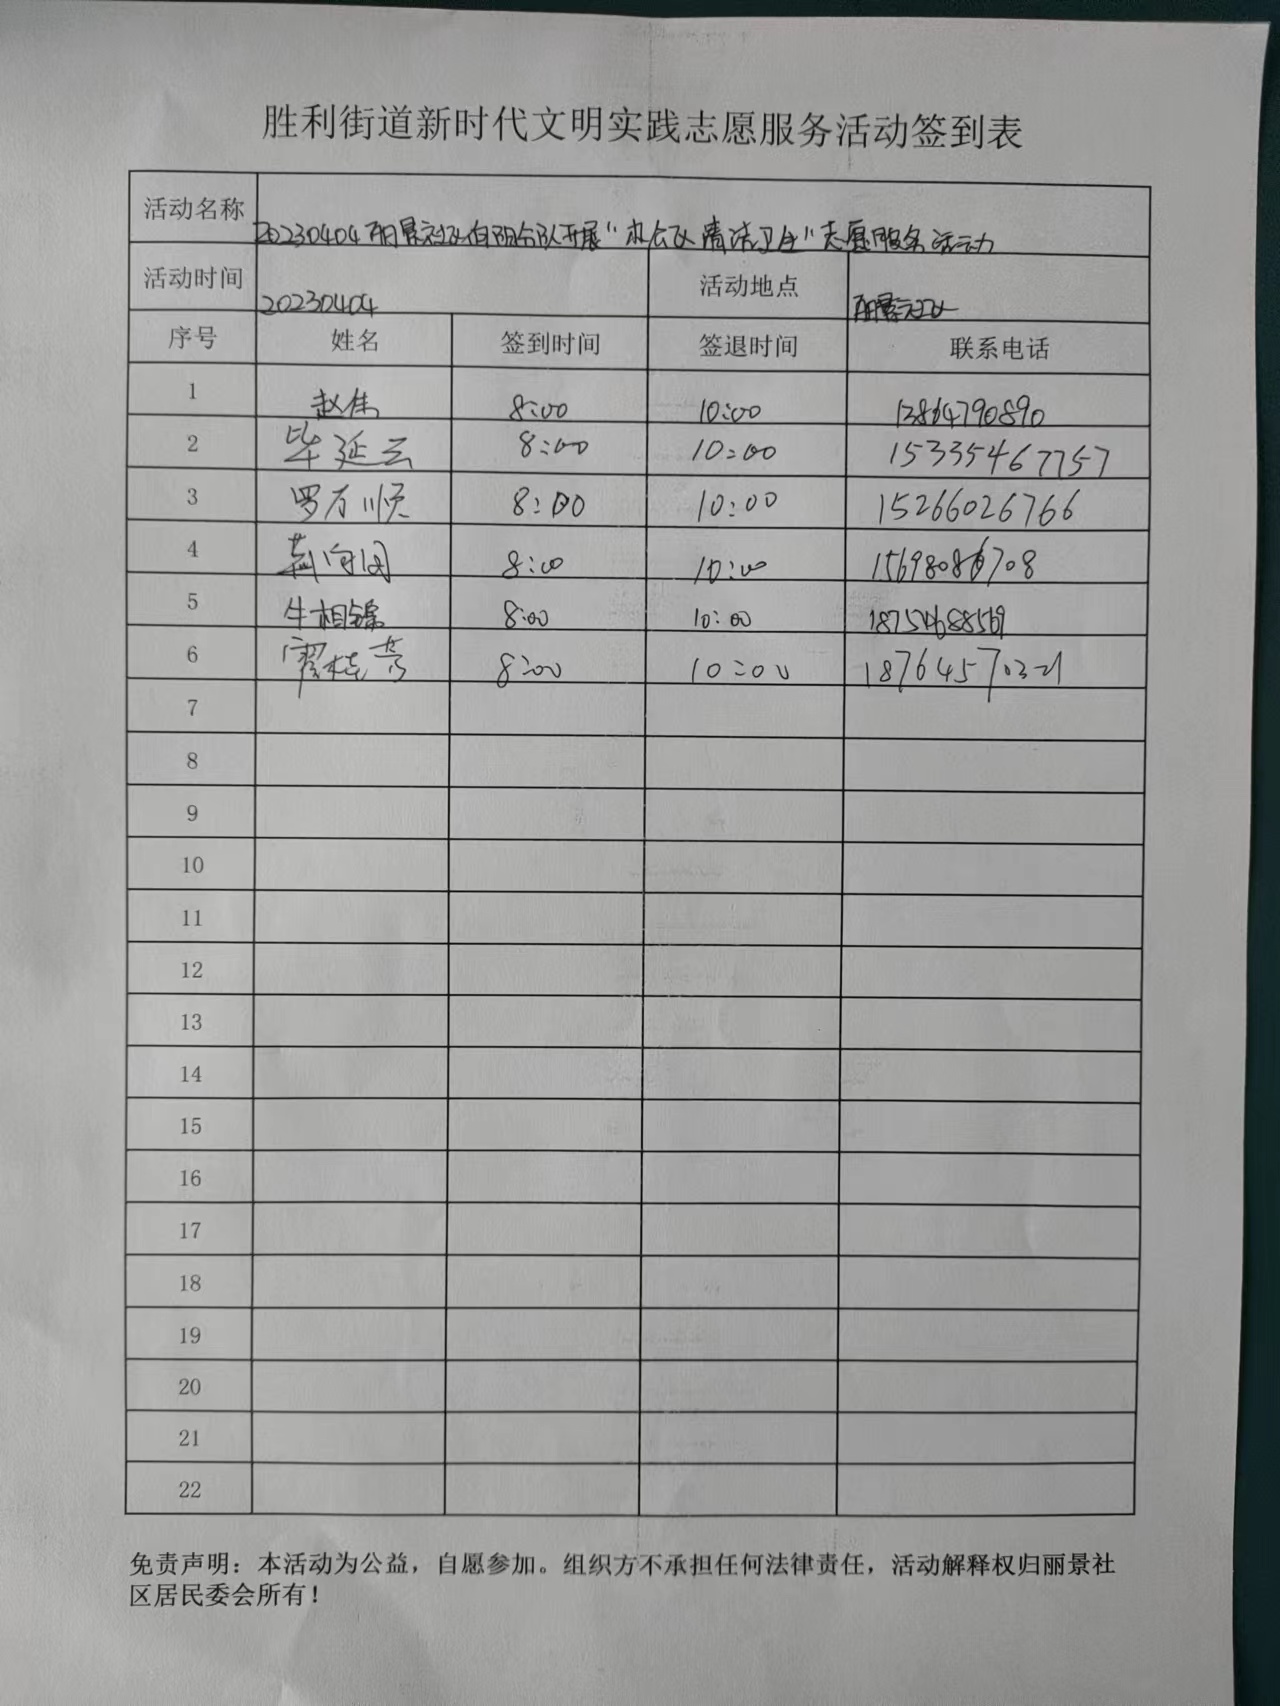 胜利街道新时代文明实践志愿服务活动签到表
活动名称 20230404丽景社区向阳分队开展“办公区清洁卫生”志愿服务活动
活动时间 20230404 活动地点 丽景社区
序号 姓名 签到时间 签退时间 联系电话
1 赵伟 8:00 10:00 13864790890
2 毕延云 8:00 10:00 15335467757
3 罗万顺 8:00 10:00 15266026766
4 8:00 10:00
5 牛相锦 8:00 10:00
6 廖桂芳 8:00 10:00 18764570321
7
8
9
10
11
12
13
14
15
16
17
18
19
20
21
22
免责声明：本活动为公益，自愿参加。组织方不承担任何法律责任，活动解释权归丽景社
区居民委会所有！